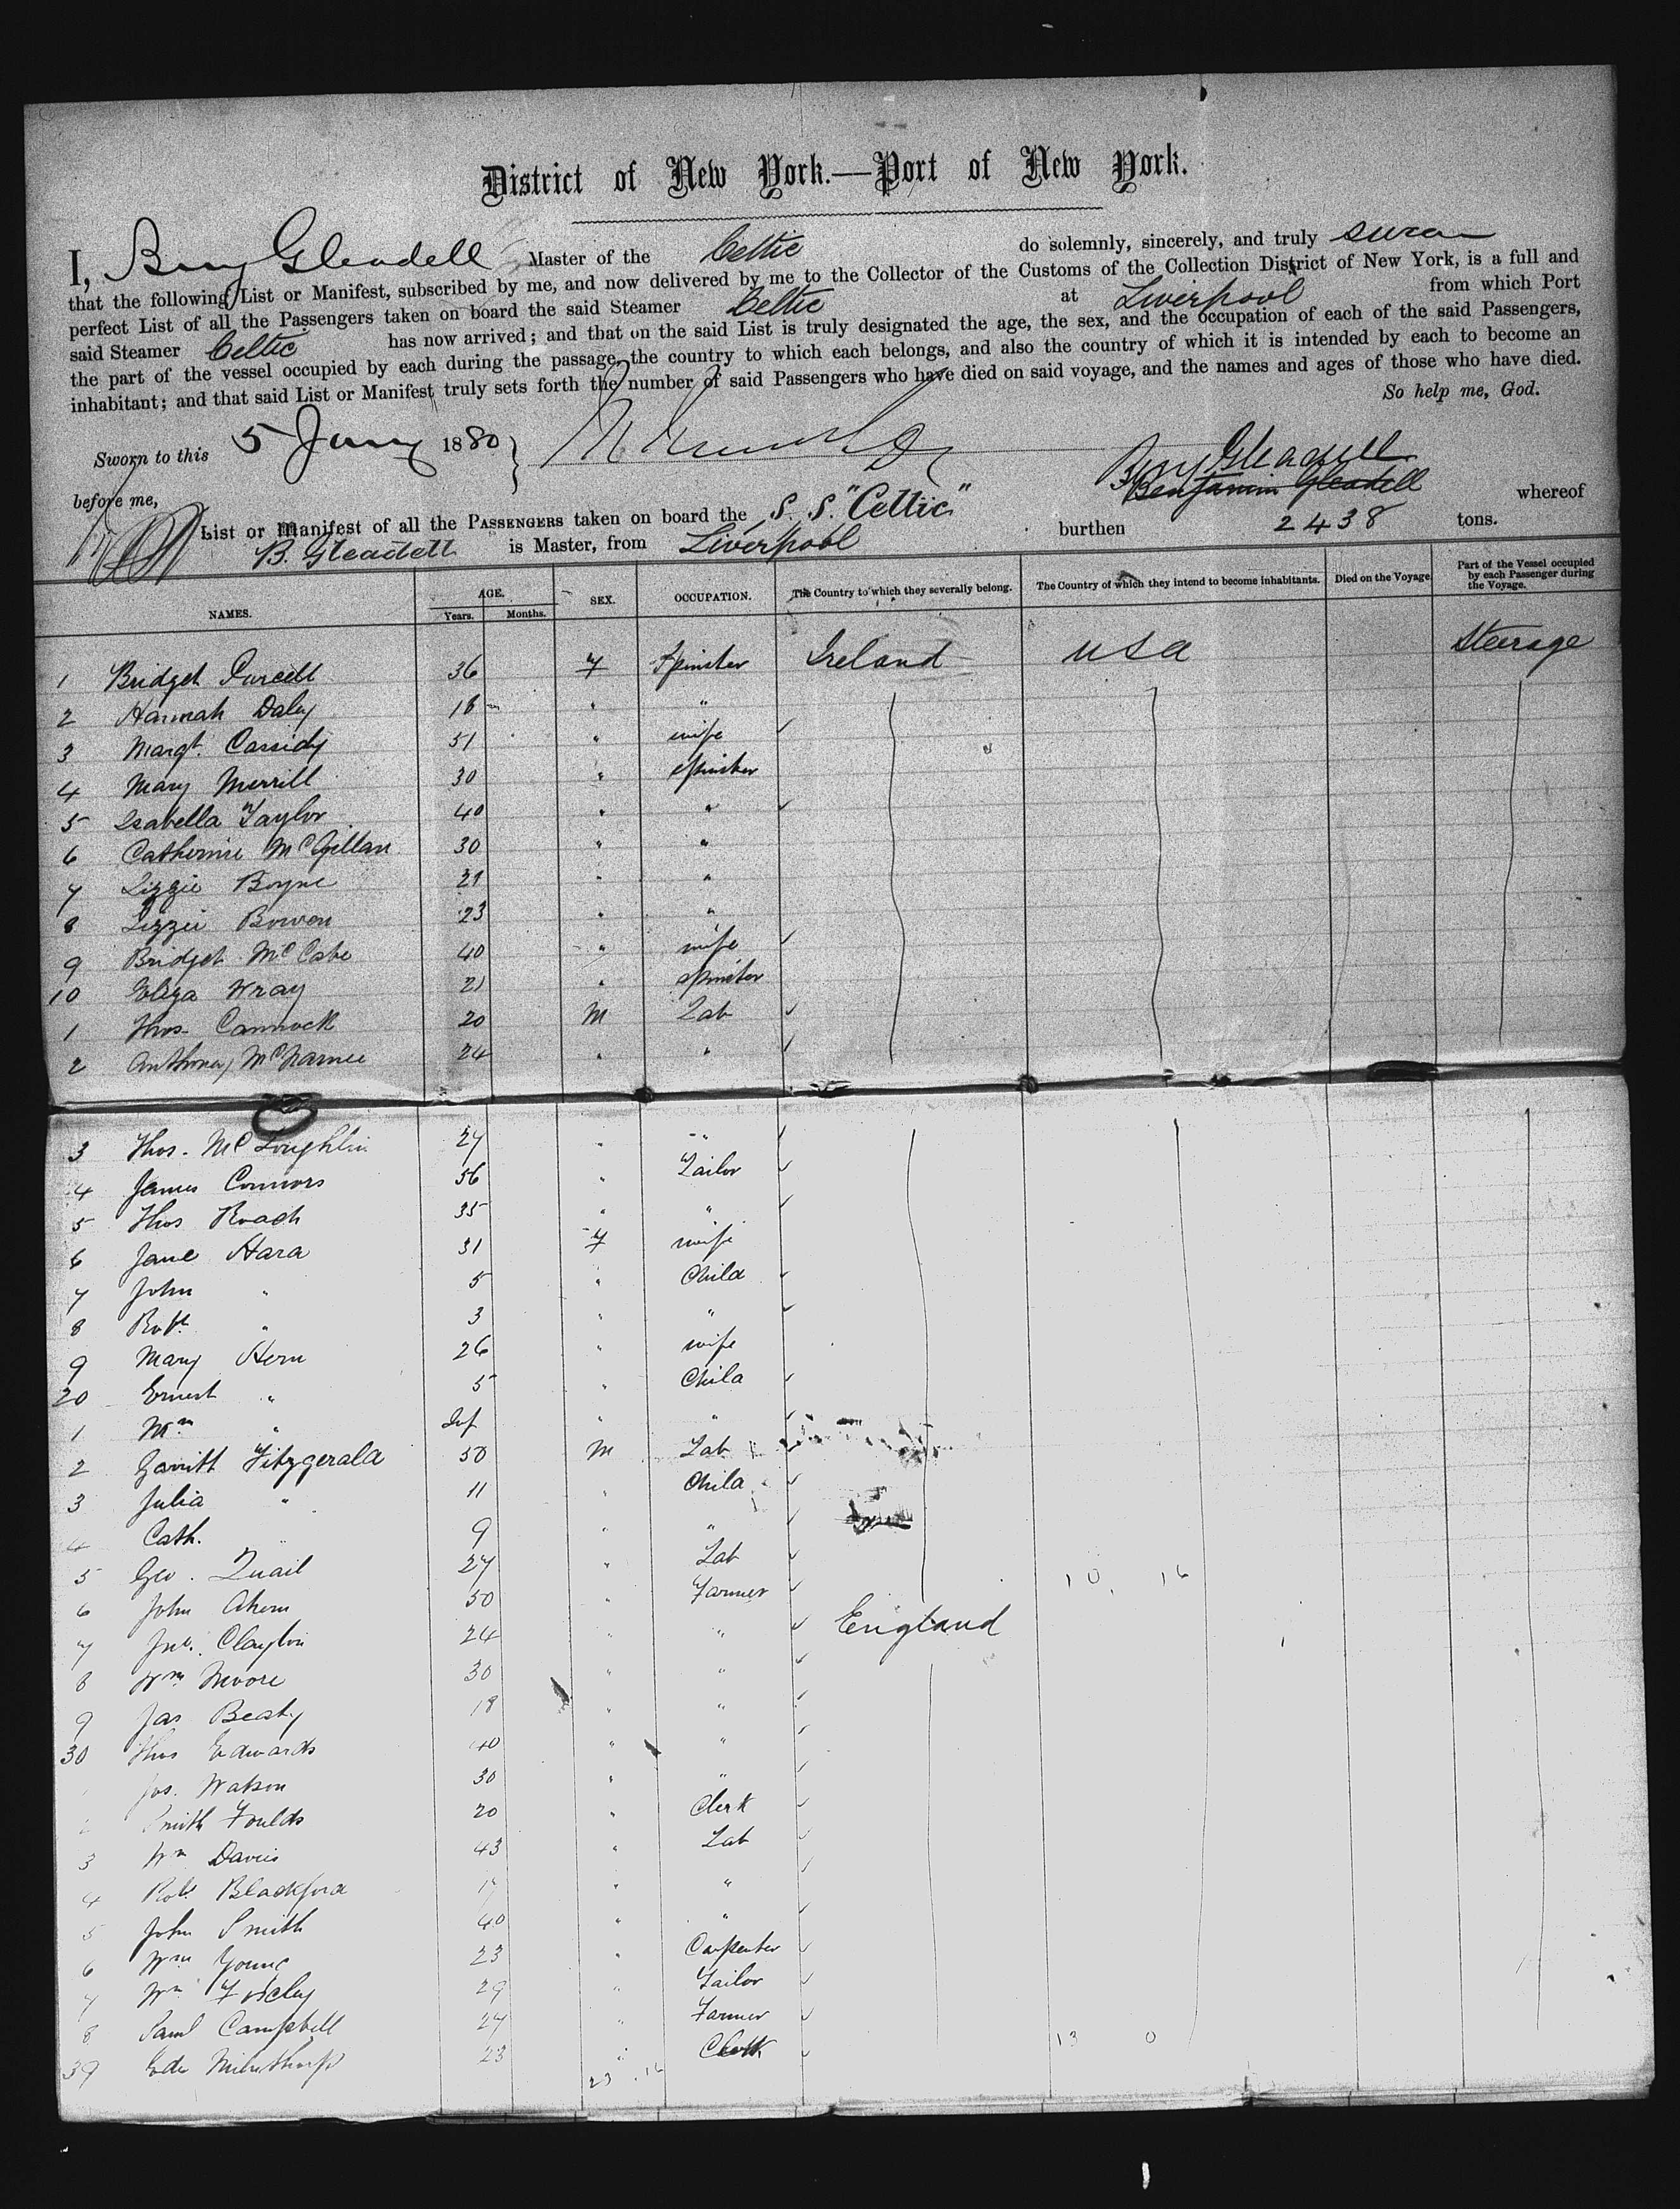 District of New York.—Port of New York.
I, Benj Gleadell Master of the Celtic do solemnly, sincerely, and truly swear
that the following List or Manifest, subscribed by me, and now delivered by me to the Collector of the Customs of the Collection District of New York, is a full and
perfect List of all the Passengers taken on board the said Steamer Celtic at Liverpool from which Port
said Steamer Celtic has now arrived; and that on the said List is truly designated the age, the sex, and the occupation of each of the said Passengers,
the part of the vessel occupied by each during the passage, the country to which each belongs, and also the country of which it is intended by each to become an
inhabitant; and that said List or Manifest truly sets forth the number of said Passengers who have died on said voyage, and the names and ages of those who have died.
So help me, God.
Sworn to this 5 Jany 1880
Benj Gleadell
before me, Benjamin Gleadell
List or Manifest of all the PASSENGERS taken on board the S. S. "Celtic" whereof
B. Gleadell is Master, from Liverpool burthen 2438 tons.
NAMES. AGE. Years. Months. SEX. OCCUPATION. The Country to which they severally belong. The Country of which they intend to become inhabitants. Died on the Voyage. Part of the Vessel occupied by each Passenger during the Voyage.
1 Bridget Purcell 36 F Spinster Ireland USA Steerage
2 Hannah Daly 18 " "
3 Margt. Cassidy 51 " wife
4 Mary Merrill 30 " spinster
5 Isabella Taylor 40 " "
6 Catherine McGillan 30 " "
7 Lizzie Boyne 21 " "
8 Lizzie Bowen 23 " "
9 Bridget McCabe 40 " wife
10 Eliza Wray 21 " spinster
1 Thos. Cannock 20 M Lab
2 Anthony McNamee 24 " "
3 Thos. McLoughlin 27 " "
4 James Connors 56 " Tailor
5 Thos Roach 35 " "
6 Jane Hara 31 F wife
7 John " 5 " Child
8 Robt. " 3 " "
9 Mary Hern 26 " wife
20 Ernest " 5 " Child
1 Wm " Inf " "
2 Garritt Fitzgerald 50 M Lab
3 Julia " 11 " Child
4 Cath. " 9 " "
5 Geo. Quail 27 " Lab
6 John Ahern 50 " Farmer 10, 16
7 Jno. Clayton 24 " " England
8 Wm Moore 30 " "
9 Jas Beaty 18 " "
30 Thos Edwards 40 " "
Jos. Watson 30 " "
2 Smith Foulds 20 " Clerk
3 Wm Davis 43 " Lab
4 Robt Blackford " "
5 John Smith 40 " "
6 Wm Young 23 " Carpenter
7 Wm 29 " Tailor
8 Saml Campbell 27 " Farmer
39 Edw 23 " Clerk 13 0
23 . 16